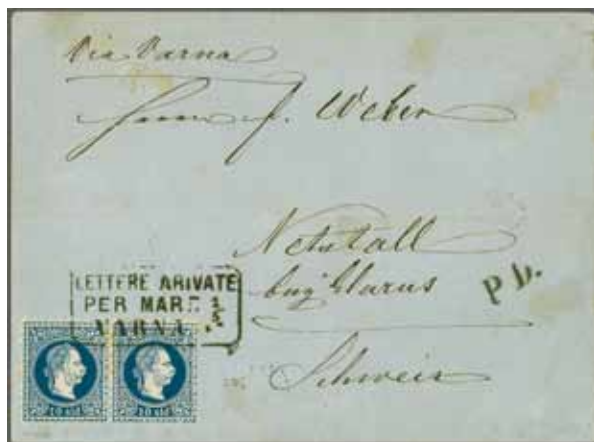 Via Varna
Herrn J. Weber
Netstall
bey Glarus
P.D.
Schweiz
LETTERE ARIVATE
PER MARE
VARNA
10 sld 10 sld